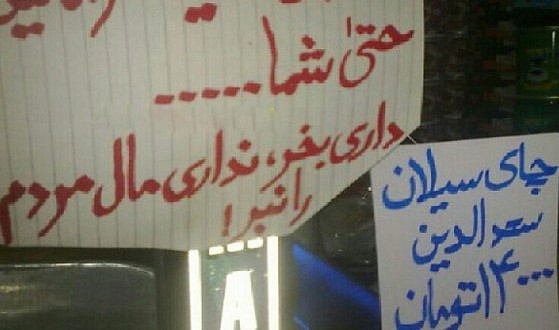 حتیٰ شما.....
داری بخر، نداری مال مردم
را نبر!
چای سیلان
سعدالدین
۱۴۰۰۰تومان
A